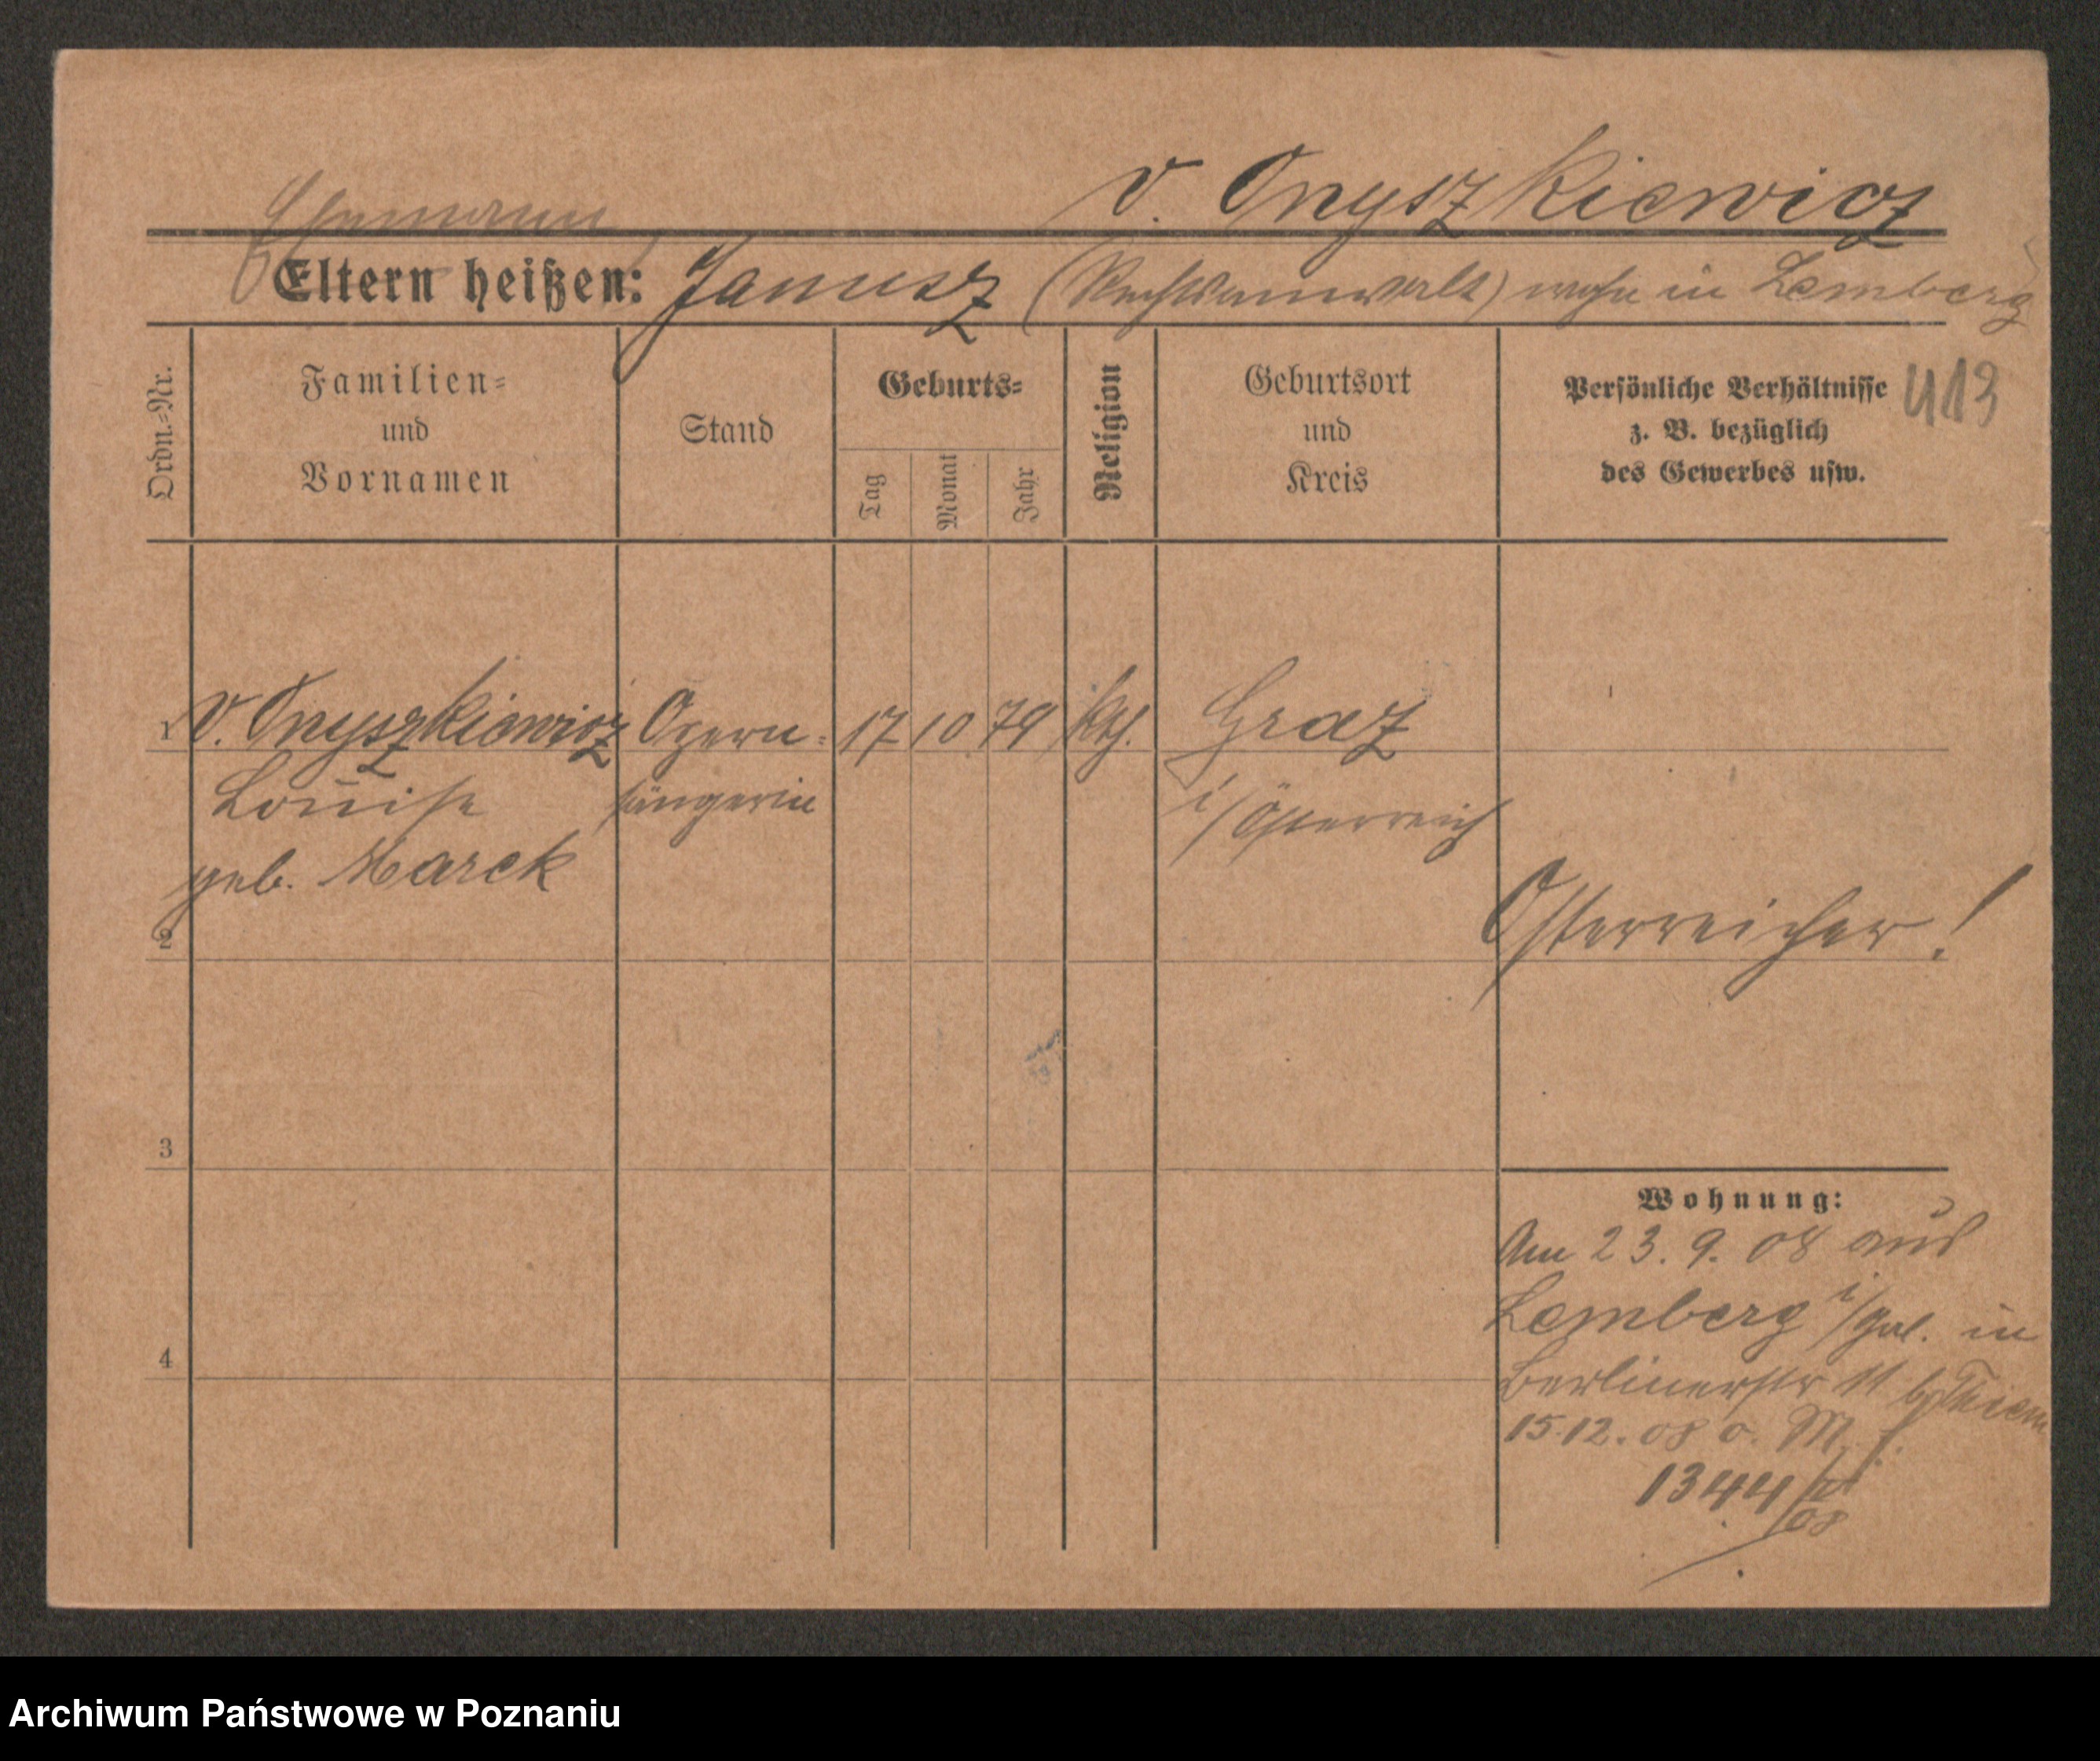 v. Onyszkiewicz
Ehemann
Eltern heißen: Janusz (Rechtsanwalt) wohn in Lemberg
413
Ordn.=Nr.
Familien=
und
Vornamen
Stand
Geburts=
Tag
Monat
Jahr
Religion
Geburtsort
und
Kreis
Persönliche Verhältnisse
z. B. bezüglich
des Gewerbes usw.
1 v. Onyszkiewicz Opern= 17 10 79 kth. Graz
Louise sängerin i/Österreich
geb. Marck
2
Österreicher!
3
Wohnung:
Am 23. 9. 08 aus
Lemberg i/Gal. in
4
Berlinerstr 11 b/Thiem
15.12. 08 o. M.
1344
08
Archiwum Państwowe w Poznaniu